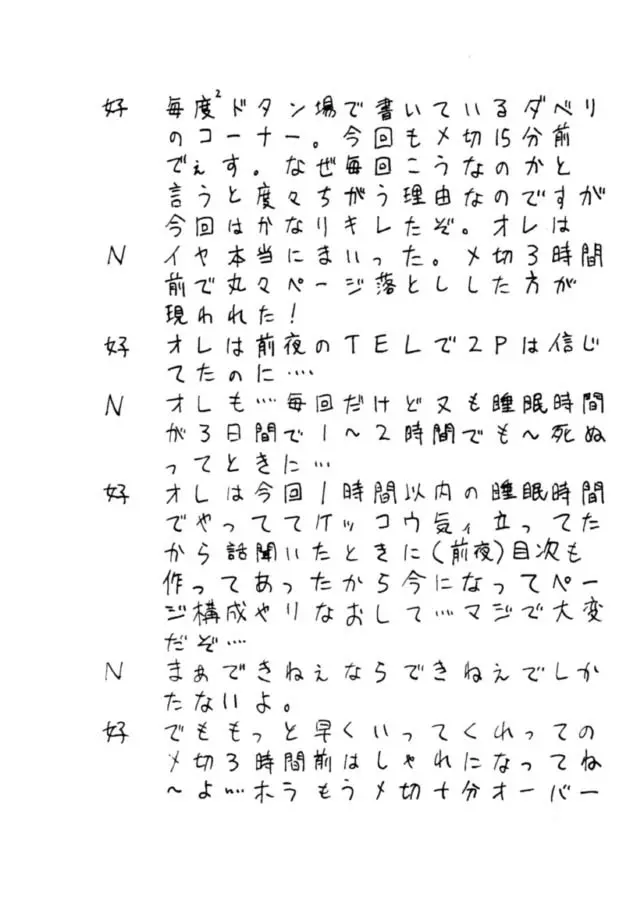 好 毎度²ドタン場で書いているダベリ
のコーナー。今回も〆切15分前
でぇす。なぜ毎回こうなのかと
言うと度々ちがう理由なのですが
今回はかなりキレたぞ。オレは
N イヤ本当にまいった。〆切3時間
前で丸々ページ落とししした方が
現われた!
好 オレは前夜のTELで2Pは信じ
てたのに‥‥
N オレも…毎回だけど又も睡眠時間
が3日間で1〜2時間でも〜死ぬ
ってときに…
好 オレは今回1時間以内の睡眠時間
でやっててケッコウ気ィ立ってた
から話聞いたときに(前夜)目次も
作ってあったから今になってペー
ジ構成やりなおして…マジで大変
だぞ…
N まぁできねぇならできねぇでしか
たないよ。
好 でももっと早くいってくれっての
〆切3時間前はしゃれになってね
〜よ‥‥ホラもう〆切十分オーバー